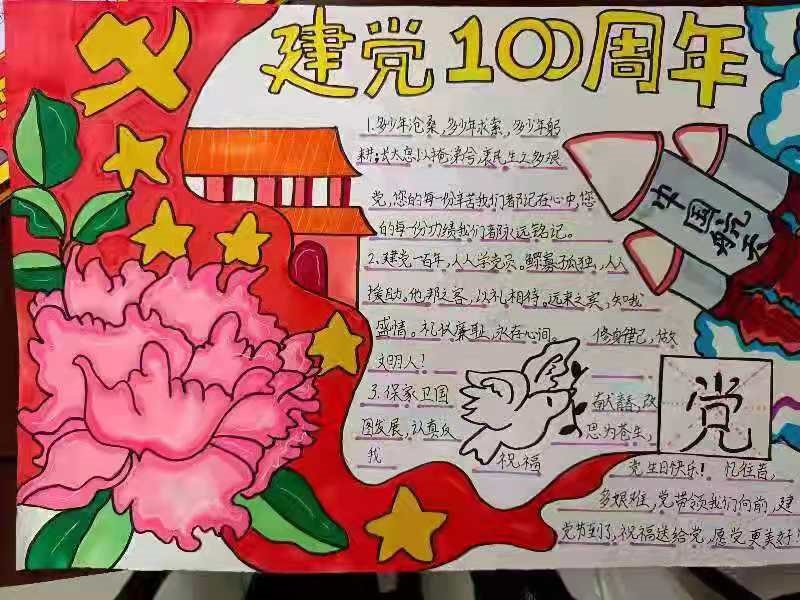 建党100周年
1.多少年沧桑,多少年求索,多少年躬
耕;长太息以掩涕兮,哀民生之多艰
党,您的每一份辛苦我们都记在心中,您
的每一份功绩我们都永远铭记。
2.建党一百年,人人学党员。鳏寡孤独,人人
援助。他邦之客,以礼相待。远来之宾,知我
盛情。礼义廉耻,永存心间。 修身律己,做
文明人!
3.保家卫国 献青春,改
图发展,认真反 思为苍生,
我 祝福
党生日快乐! 忆往昔,
多艰难,党带领我们向前,建
党节到了,祝福送给党,愿党更美好!
中国航天
党